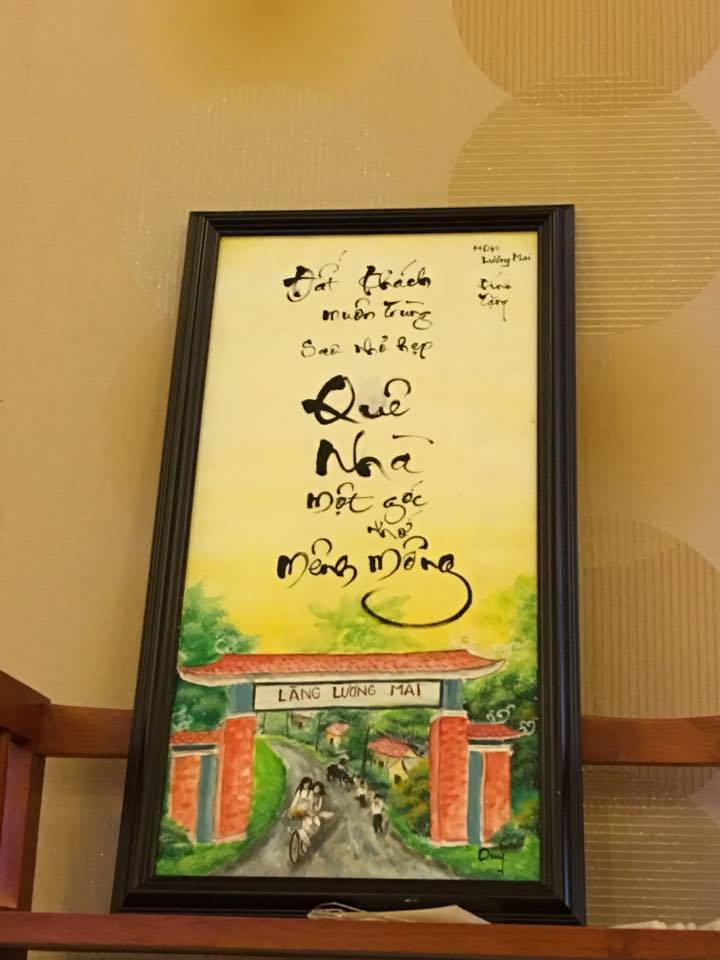 Đất khách
muôn trùng
sao nhỏ hẹp
Quê
Nhà
một góc
nhớ
mênh mông
HĐH
Lương Mai
Kính
tặng
LÀNG LƯƠNG MAI
Duy